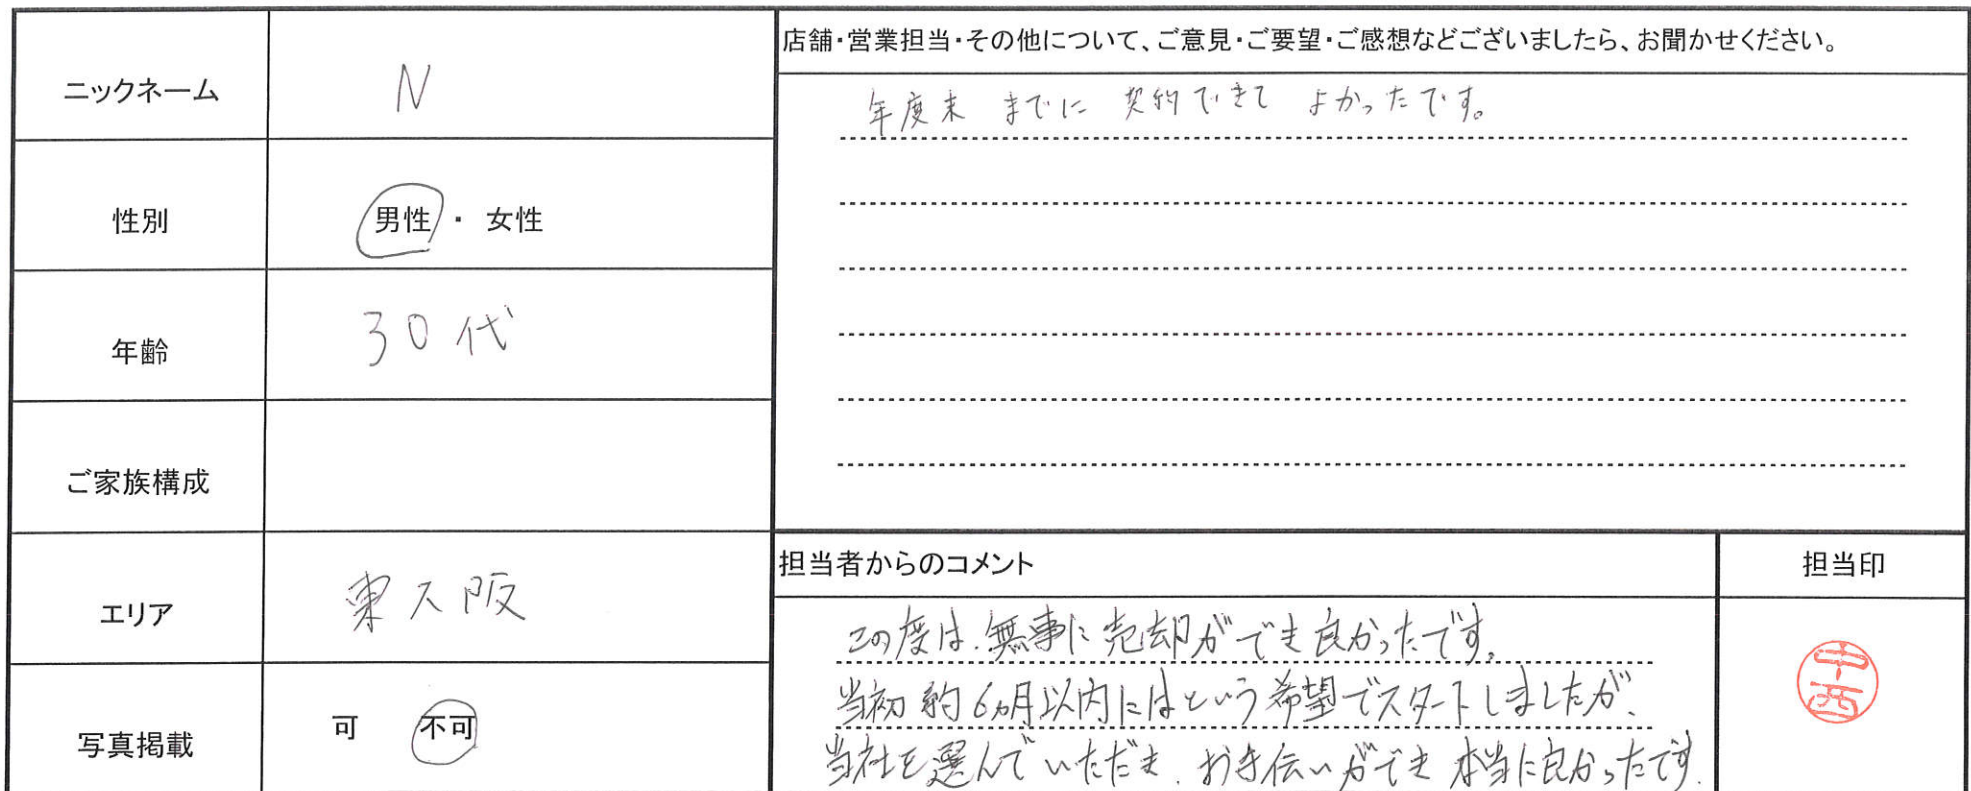 ニックネーム
N
性別
男性・女性
年齢
30代
ご家族構成
エリア
東大阪
写真掲載
可 不可
店舗・営業担当・その他について、ご意見・ご要望・ご感想などございましたら、お聞かせください。
年度末 までに 契約できて よかったです。
担当者からのコメント
この度は、無事に売却ができ良かったです。
当初 約6ヵ月以内にはという希望でスタートしましたが、
当社を選んでいただき、お手伝いができ 本当に良かったです。
担当印
中西